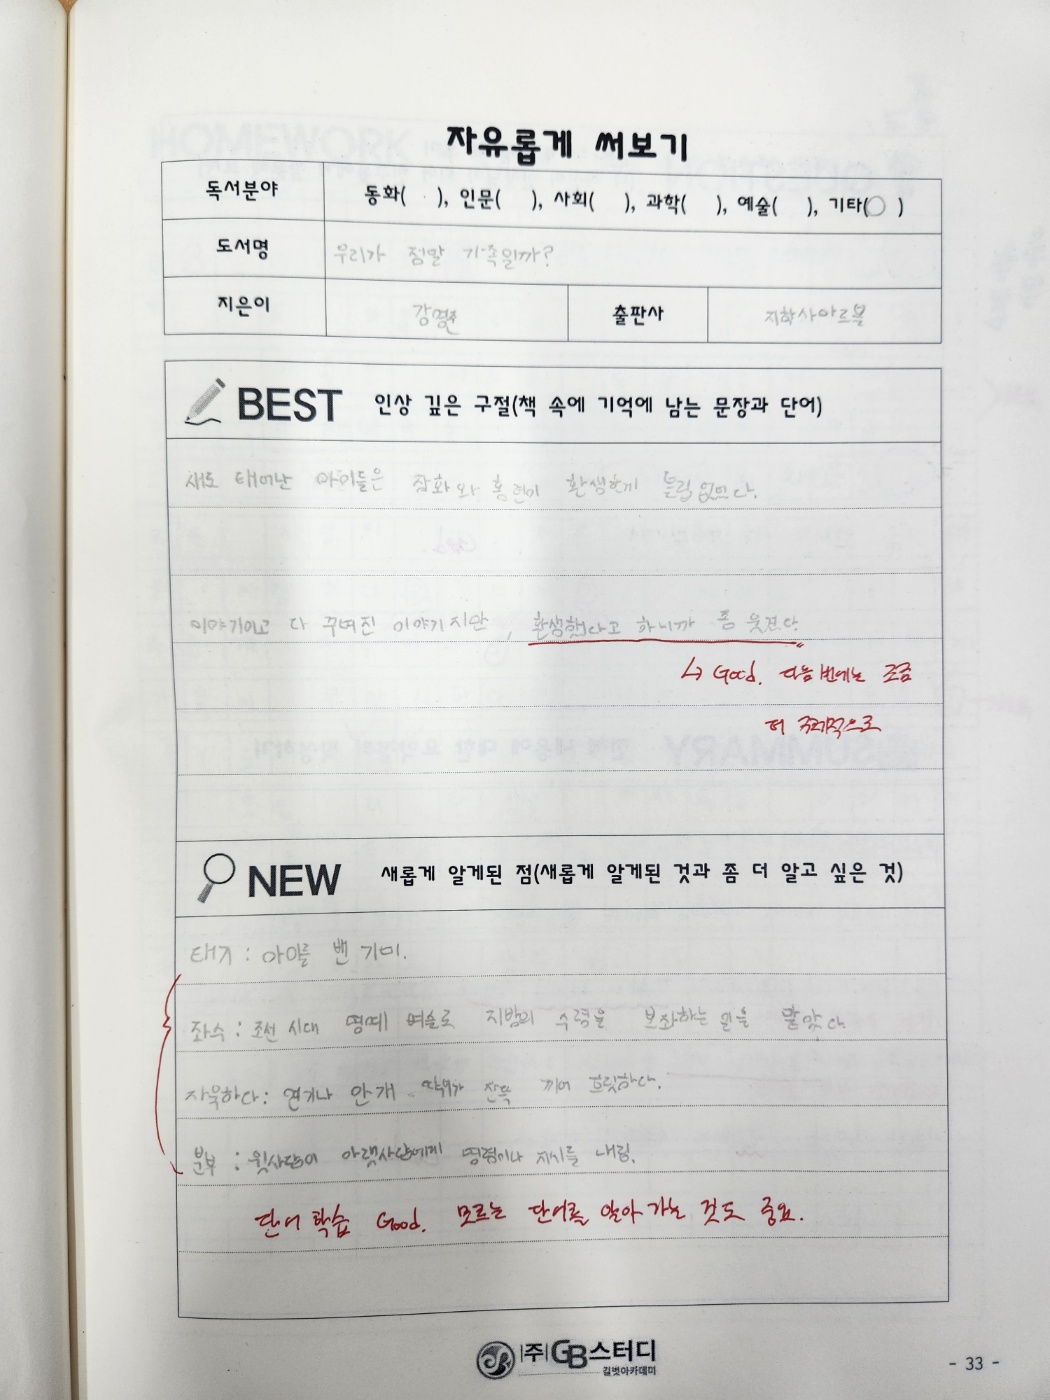 자유롭게 써보기
독서분야 동화( ), 인문( ), 사회( ), 과학( ), 예술( ), 기타(○ )
도서명 우리가 정말 가족일까?
지은이 강경 출판사 지학사아르볼
BEST 인상 깊은 구절(책 속에 기억에 남는 문장과 단어)
새로 태어난 아이들은 장화와 홍련이 환생한게 틀림없었다.
이야기이고 다 꾸며진 이야기지만, 환생했다고 하니까 좀 웃긴다.
↳ Good. 다음 번에는 조금
더 구체적으로
NEW 새롭게 알게된 점(새롭게 알게된 것과 좀 더 알고 싶은 것)
태기 : 아이를 밴 기미.
좌수 : 조선 시대 지방의 수령을 보좌하는 일을 맡았다
자욱하다 : 연기나 안개 따위가 잔뜩 끼어 흐릿하다.
분부 : 윗사람이 아랫사람에게 명령이나 지시를 내림.
단어 학습 Good. 모르는 단어를 알아 가는 것도 중요.
(주)GB스터디
길벗아카데미
- 33 -